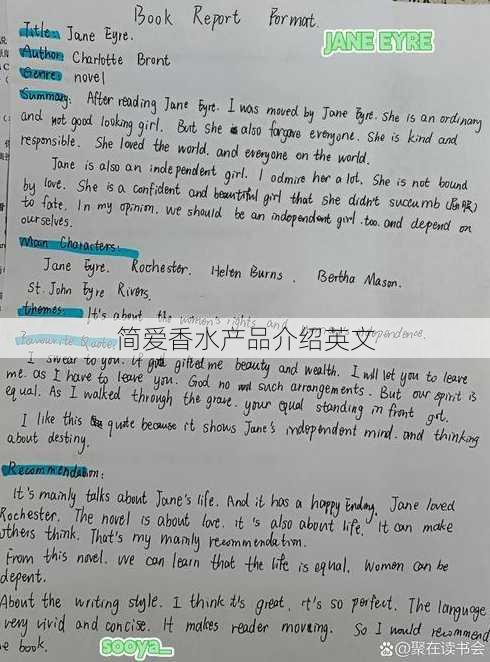 Book Report Format.
Title: Jane Eyre.
JANE EYRE
Author: Charlotte Bront
Genre: novel
Summary: After reading Jane Eyre. I was moved by Jane Eyre. She is an ordinary
and not good looking girl. But she is also forgave everyone. She is kind and
responsible. She loved the world. and everyone on the world.
Jane is also an independent girl. I admire her a lot. She is not bound
by love. She is a confident and beautiful girl that she didn't succumb (屈服)
to fate. In my opinion. we should be an independent girl .too. and depend on
ourselves.
Main Characters:
Jane Eyre. Rochester. Helen Burns . Bertha Mason.
St. John Eyre Rivers.
Themes: It's about the women's rights and independence.
简爱香水产品介绍英文
Favourite Quote:
I swear to you. if god gifted me beauty and wealth. I will let you to leave
me. as I have to leave you. God no such arrangements. But our spirit is
equal. As I walked through the grave. your equal standing in front got.
I like this quote because it shows Jane's independent mind. and thinking
about destiny.
Recommendation:
It's mainly talks about Jane's life. And it has a happy Ending. Jane loved
Rochester. The novel is about love. it 's also about life. It can make
others think. That's my mainly recommendation.
From this novel. we can learn that the life is equal. Women can be
depent.
About the writing style. I think it's great. it's so perfect. The language
very vivid and concise. It makes reader moving. So I would recommend
e book.
sooya_
@聚在读书会